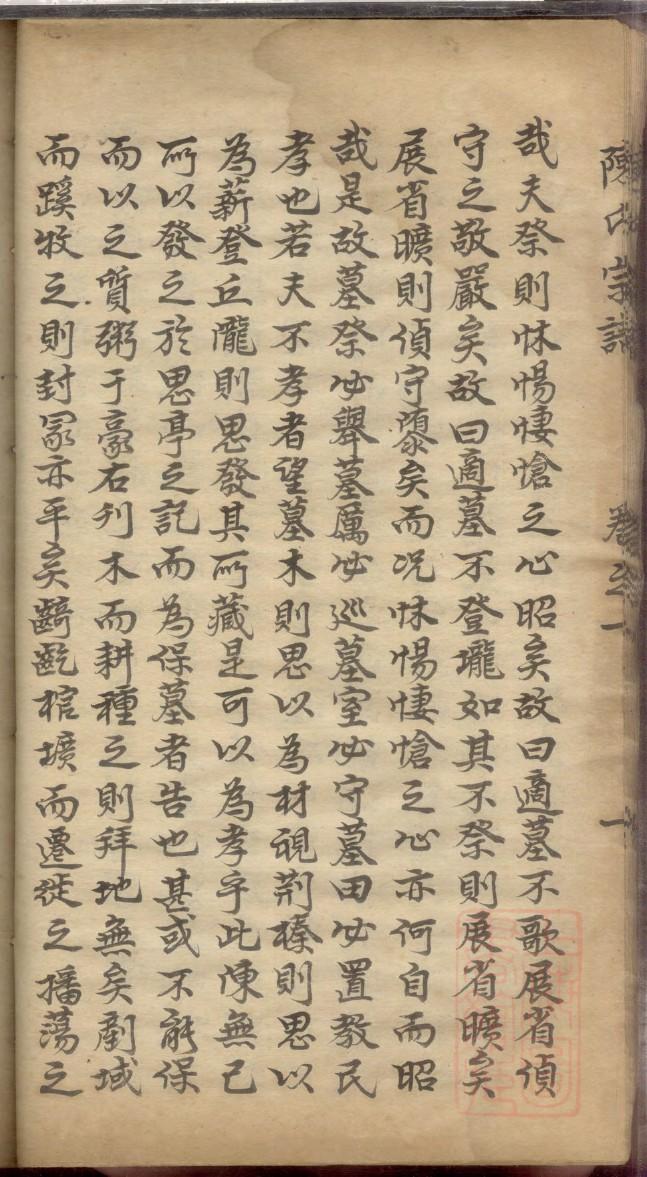 陳氏宗譜 卷之一 一
哉夫祭則怵惕悽愴之心昭矣故曰適墓不歌展省偵
守之敬嚴矣故曰適墓不登壠如其不祭則展省曠矣
展省曠則偵守隳矣而况怵惕悽愴之心亦何自而昭
哉是故墓祭必舉墓厲必巡墓室必守墓田必置教民
孝也若夫不孝者望墓木則思以為材視荆榛則思以
為薪登丘隴則思發其所藏是可以為孝乎此陳無已
所以發之於思亭之記而為保墓者告也甚或不能保
而以之質粥于豪右刋木而耕種之則拜地無矣剷域
而蹊牧之則封冢亦平矣齮齕棺壙而遷徙之播蕩之